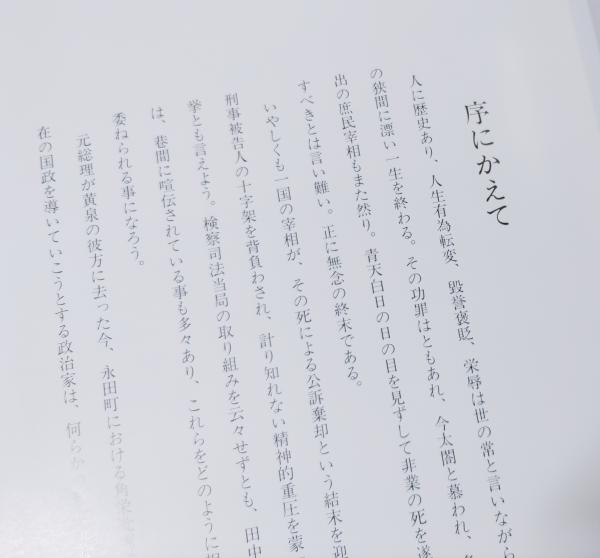 序にかえて
人に歴史あり、人生有為転変、毀誉褒貶、栄辱は世の常と言いながら
の狭間に漂い一生を終わる。その功罪はともあれ、今太閤と慕われ、
出の庶民宰相もまた然り。青天白日の日の目を見ずして非業の死を遂
すべきとは言い難い。正に無念の終末である。
いやしくも一国の宰相が、その死による公訴棄却という結末を迎
刑事被告人の十字架を背負わされ、計り知れない精神的重圧を蒙
挙とも言えよう。検察司法当局の取り組みを云々せずとも、田中
は、巷間に喧伝されている事も多々あり、これらをどのように
委ねられる事になろう。
元総理が黄泉の彼方に去った今、永田町における角栄
在の国政を導いていこうとする政治家は、何らかの